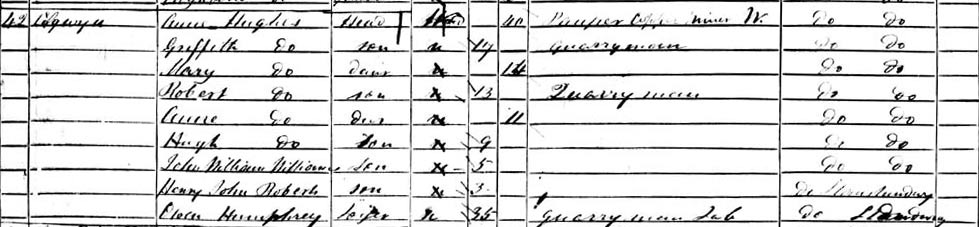 42 Anne Hughes Head 40 Pauper Copper Miner W. do do
Griffith do son u 17 Quarryman do do
Mary do daur 14 do do
Robert do son 13 Quarryman do do
Anne do daur 11 do do
Hugh do son 9 do do
John William Williams son 5 do do
Henry John Roberts son 3 do
Owen Humphrey Lodger u 35 Quarryman Lab do